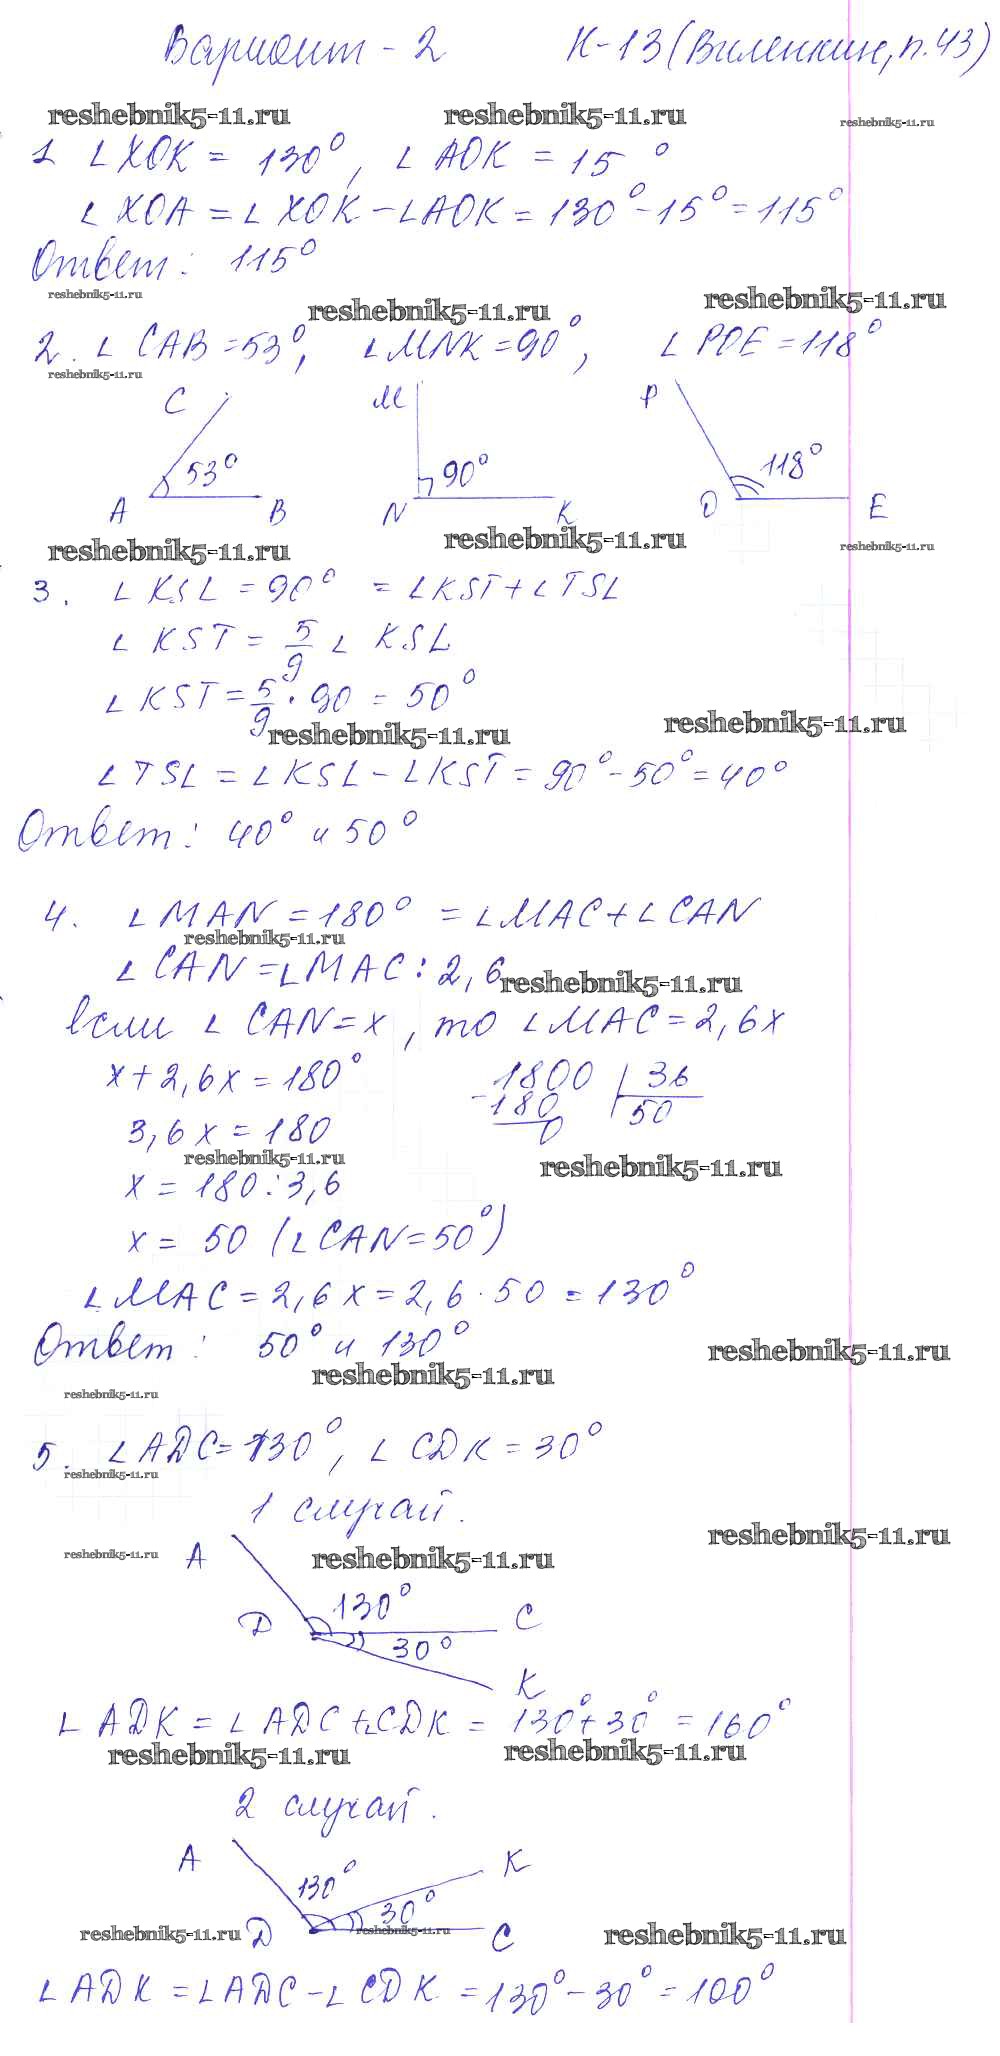 Вариант - 2 К-13 (Виленкин, п.43)
reshebnik5-11.ru reshebnik5-11.ru reshebnik5-11.ru
1 ∠XOK = 130°, ∠AOK = 15°
∠XOA = ∠XOK - ∠AOK = 130° - 15° = 115°
Ответ: 115°
reshebnik5-11.ru reshebnik5-11.ru reshebnik5-11.ru
2. ∠CAB = 53°, ∠MNK = 90°, ∠POE = 118°
reshebnik5-11.ru
C M P
53° 90° 118°
A B N K O E
reshebnik5-11.ru reshebnik5-11.ru reshebnik5-11.ru
3. ∠KSL = 90° = ∠KST + ∠TSL
∠KST = 5/9 ∠KSL
∠KST = 5/9 · 90 = 50°
reshebnik5-11.ru reshebnik5-11.ru
∠TSL = ∠KSL - ∠KST = 90° - 50° = 40°
Ответ: 40° и 50°
4. ∠MAN = 180° = ∠MAC + ∠CAN
reshebnik5-11.ru
∠CAN = ∠MAC : 2,6
reshebnik5-11.ru
если ∠CAN = x, то ∠MAC = 2,6x
x + 2,6x = 180° 1800 | 36
3,6x = 180 -180 50
0
reshebnik5-11.ru reshebnik5-11.ru
x = 180 : 3,6
x = 50 (∠CAN = 50°)
∠MAC = 2,6x = 2,6 · 50 = 130°
Ответ: 50° и 130°
reshebnik5-11.ru reshebnik5-11.ru reshebnik5-11.ru
5. ∠ADC = 130°, ∠CDK = 30°
reshebnik5-11.ru
1 случай.
reshebnik5-11.ru reshebnik5-11.ru reshebnik5-11.ru
A
130°
D C
30°
K
∠ADK = ∠ADC + ∠CDK = 130° + 30° = 160°
reshebnik5-11.ru reshebnik5-11.ru
2 случай.
A K
130°
30°
D C
reshebnik5-11.ru reshebnik5-11.ru reshebnik5-11.ru
∠ADK = ∠ADC - ∠CDK = 130° - 30° = 100°